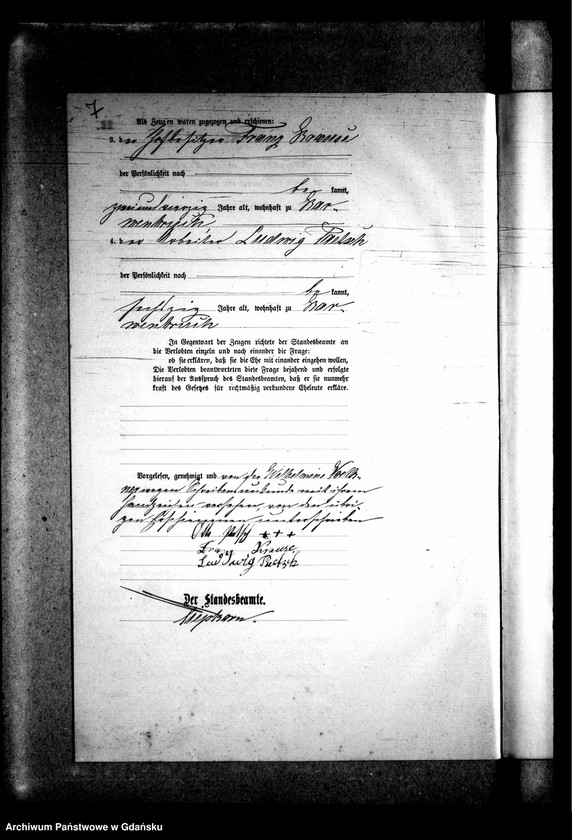 7
Als Zeugen waren zugezogen und erschienen:
3. der Hofbesitzer Franz Krause
der Persönlichkeit nach
bekannt,
zweiundvierzig Jahre alt, wohnhaft zu Kar-
wenbruch
4. der Arbeiter Ludwig
der Persönlichkeit nach
bekannt,
sechzig Jahre alt, wohnhaft zu Kar-
wenbruch
In Gegenwart der Zeugen richtete der Standesbeamte an
die Verlobten einzeln und nach einander die Frage:
ob sie erklären, daß sie die Ehe mit einander eingehen wollen,
Die Verlobten beantworteten diese Frage bejahend und erfolgte
hierauf der Ausspruch des Standesbeamten, daß er sie nunmehr
kraft des Gesetzes für rechtmäßig verbundene Eheleute erkläre.
Vorgelesen, genehmigt und von der Wilhelmine
wegen Schreibensunkunde mit ihrem
Handzeichen versehen, von den übri-
gen Erschienenen unterschrieben
Otto +++
Franz Krause
Ludwig
Der Standesbeamte.
Archiwum Państwowe w Gdańsku